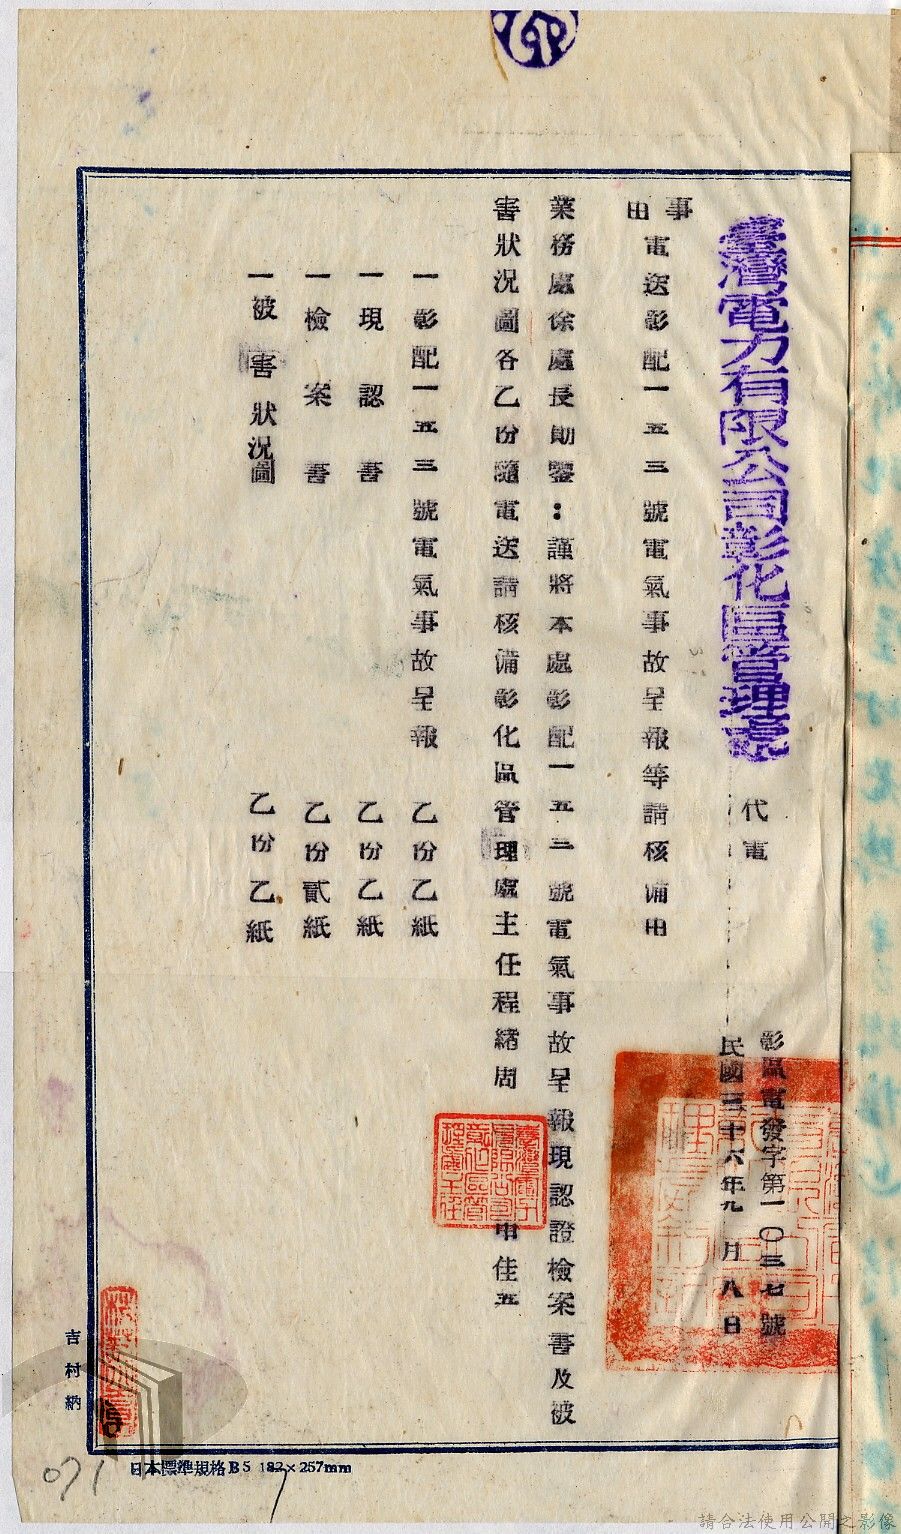 臺灣電力有限公司彰化區管理處
代電
彰區電發字第一〇三七號
民國三十六年九月八日
事由
電送彰配一五三號電氣事故呈報等請核備由
業務處徐處長勛鑒：謹將本處彰配一五三號電氣事故呈報現認證檢案書及被
害狀況圖各乙份隨電送請核備彰化區管理處主任程緒周 申佳五
一彰配一五三號電氣事故呈報 乙份乙紙
一現認書 乙份乙紙
一檢案書 乙份貳紙
一被害狀況圖 乙份乙紙
吉村納
日本標準規格B5 182×257mm
071
請合法使用公開之影像